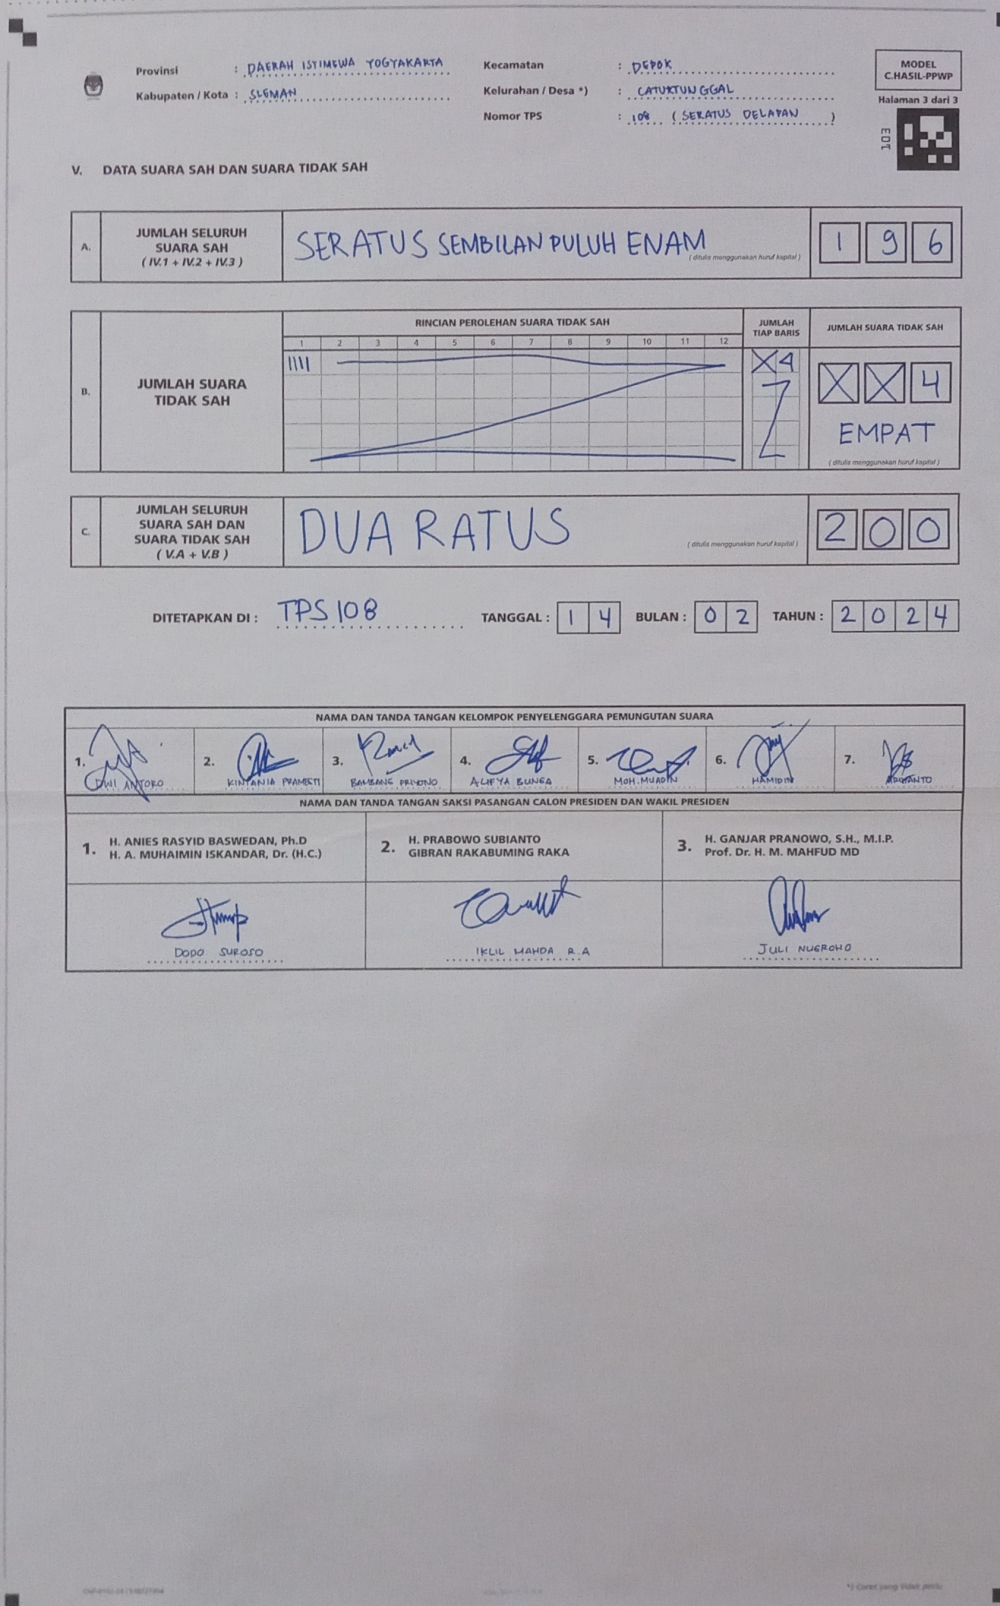 Provinsi : DAERAH ISTIMEWA YOGYAKARTA
Kabupaten / Kota : SLEMAN
Kecamatan : DEPOK
Kelurahan / Desa *) : CATURTUNGGAL
Nomor TPS : 108 ( SERATUS DELAPAN )
MODEL
C.HASIL-PPWP
Halaman 3 dari 3
V. DATA SUARA SAH DAN SUARA TIDAK SAH
A. JUMLAH SELURUH
SUARA SAH
( IV.1 + IV.2 + IV.3 )
SERATUS SEMBILAN PULUH ENAM
( ditulis menggunakan huruf kapital )
1 9 6
B. JUMLAH SUARA
TIDAK SAH
RINCIAN PEROLEHAN SUARA TIDAK SAH
1 2 3 4 5 6 7 8 9 10 11 12
IIII
JUMLAH
TIAP BARIS
X4
JUMLAH SUARA TIDAK SAH
X X 4
EMPAT
( ditulis menggunakan huruf kapital )
C. JUMLAH SELURUH
SUARA SAH DAN
SUARA TIDAK SAH
( V.A + V.B )
DUA RATUS
( ditulis menggunakan huruf kapital )
2 0 0
DITETAPKAN DI : TPS 108 TANGGAL : 1 4 BULAN : 0 2 TAHUN : 2 0 2 4
NAMA DAN TANDA TANGAN KELOMPOK PENYELENGGARA PEMUNGUTAN SUARA
1. 2. 3. 4. 5. 6. 7.
DWI ANTORO KINTANIA PRAMESTI BAMBANG PRIYONO ALIFYA BUNGA MOH. MUADIN HAMIDIN
NAMA DAN TANDA TANGAN SAKSI PASANGAN CALON PRESIDEN DAN WAKIL PRESIDEN
1. H. ANIES RASYID BASWEDAN, Ph.D
H. A. MUHAIMIN ISKANDAR, Dr. (H.C.)
2. H. PRABOWO SUBIANTO
GIBRAN RAKABUMING RAKA
3. H. GANJAR PRANOWO, S.H., M.I.P.
Prof. Dr. H. M. MAHFUD MD
DODO SUROSO
IKLIL MAHDA R.A
JULI NUGROHO
*) Coret yang tidak perlu